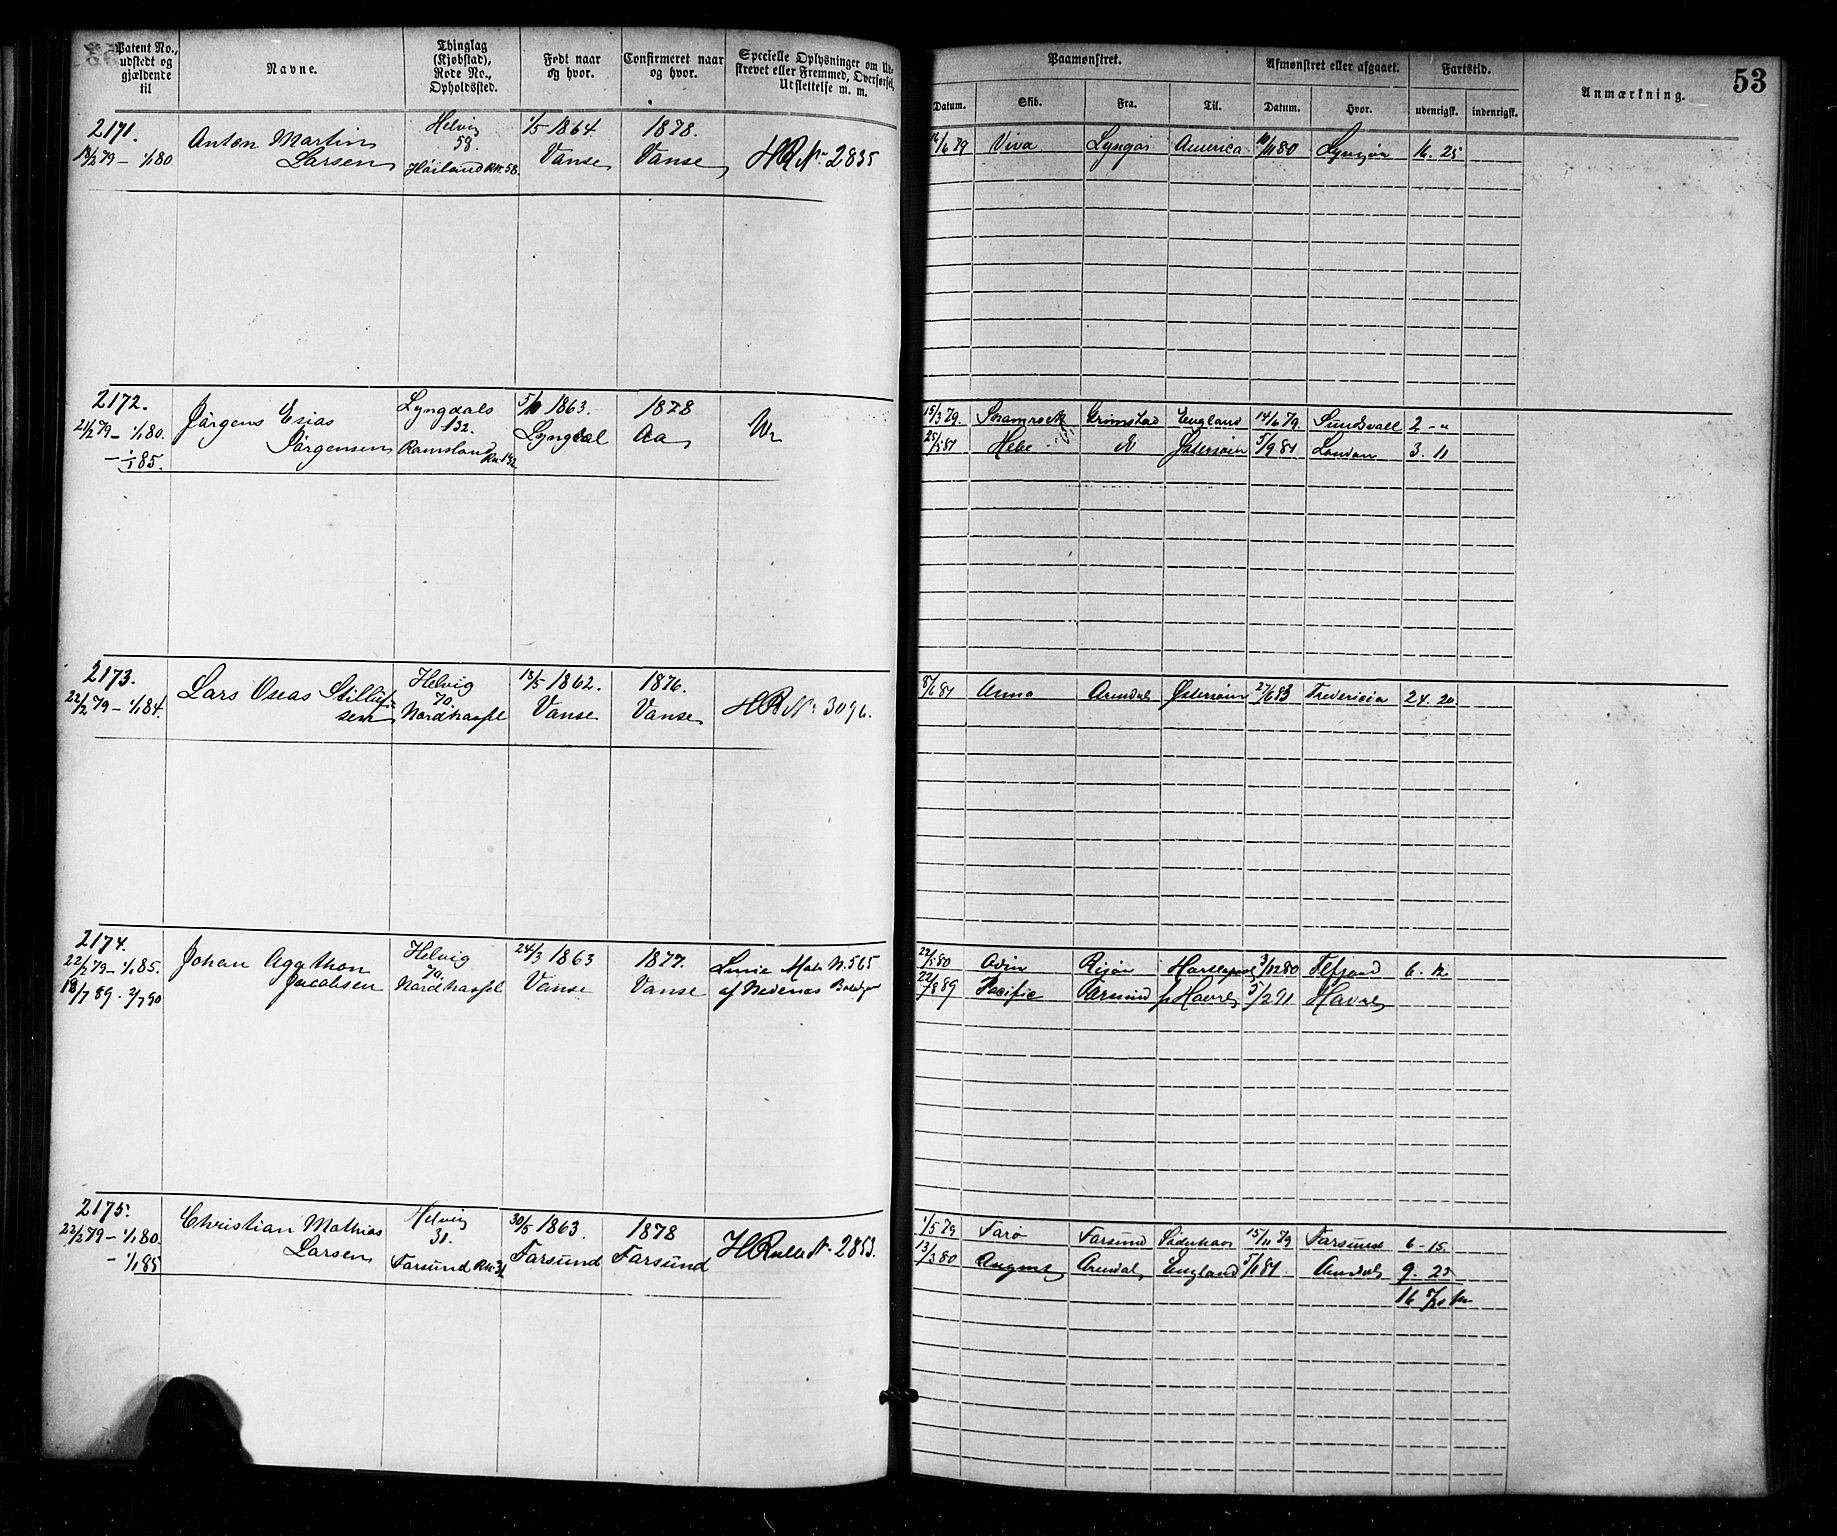 Patent No., udstedt og gjældende til
Navne.
Thinglag (Kjøbstad), Rode No., Opholdssted.
Født naar og hvor.
Confirmeret naar og hvor.
Specielle Oplysninger om Ud-
strevet eller Fremmed, Overførsel,
Udslettelse m. m.
Paamønstret.
Afmønstret eller afgaaet.
Fartstid.
Anmærkning.
53
Datum.
Skib.
Fra.
Til.
Datum.
Hvor.
udenrigsk.
indenrigsk.
2171.
18/2 79 – 1/1 80
Anton Martin
Larsen
Helvig
58.
Höiland RN. 58.
1/5 1864
Vanse
1878.
Vanse
HR No 2835
16/6 79 Viva Lyngör America 10/11 80 Lyngör 16. 25
2172.
21/2 79 – 1/1 80.
– 1/1 85.
Jörgens Esias
Jörgensen
Lyngdals
132.
Ramsland RN. 132
5/10 1863.
Lyngdal
1878
Aa
15/3 79. Snamrock Grimstad England 14/6 79. Sundsvall 2 – "
25/5 81 Hebe Östersöen 5/9 81 London 3. 11
2173.
22/2 79 – 1/1 84.
Lars Oseas Stillufsen
Helvig
70.
Nordhassel
13/5 1862.
Vanse
1876.
Vanse
HR No 3096.
8/6 81 Anna Arendal Östersöen 27/6 83 Fredericia 24. 20
2174.
22/2 79 – 1/1 85.
18/7 89 – 2/7 90
Johan Agathon
Jacobsen
Helvig
70.
Nordhassel
24/3 1863
Vanse
1877.
Vanse
No 565
af Nedenæs
22/5 80 Odin Risör Hartlepool 3/12 80 6. 12
22/8 89 Pacific Farsund Havre 5/2 91 Havre
2175.
22/2 79 – 1/1 80.
– 1/1 85
Christian Mathias
Larsen
Helvig
31.
Farsund RN. 31
30/5 1863.
Farsund
1878
Farsund
HRulle No 2853.
1/5 79 Farö Farsund Söderhavn 15/11 79 Farsund 6 – 15.
13/3 80 August Arendal England 5/1 81. Arendal 9. 25